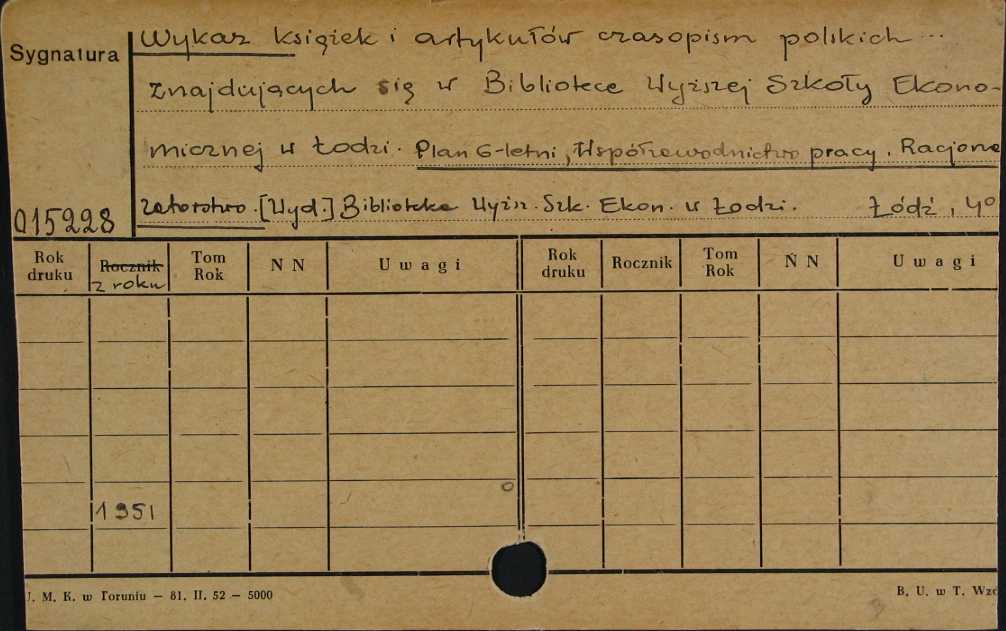 Sygnatura
Wykaz książek i artykułów czasopism polskich ...
znajdujących się w Bibliotece Wyższej Szkoły Ekono-
micznej w Łodzi. Plan 6-letni, Współzawodnictwo pracy. Racjona
zatorstwo. [Wyd.] Biblioteka Wyższ. Szk. Ekon. w Łodzi. Łódź, 4º
015228
Rok druku Rocznik z roku Tom Rok N N U w a g i Rok druku Rocznik Tom Rok N N U w a g i
1951
U. M. K. w Toruniu — 81. II. 52 — 5000 B. U. w T. Wzó